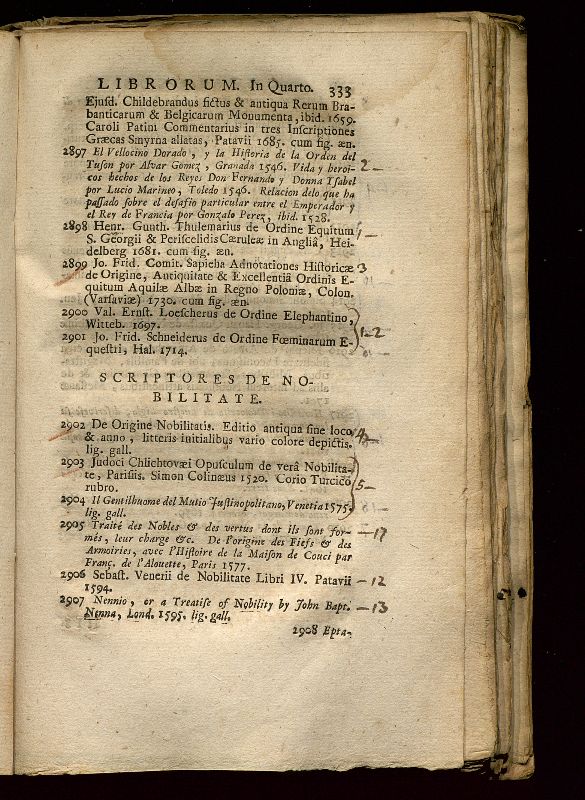 LIBRORUM. In Quarto. 333
Ejuſd. Childebrandus fictus & antiqua Rerum Bra-
banticarum & Belgicarum Monumenta, ibid. 1659.
Caroli Patini Commentarius in tres Inſcriptiones
Græcas Smyrna allatas, Patavii 1685. cum fig. æn.
2897 El Vellocino Dorado, y la Hiſtoria de la Orden del
Tuſon por Alvar Gomez, Granada 1546. Vida y heroi- 2-
cos hechos de los Reyes Don Fernando y Donna Yſabel
por Lucio Marineo, Toledo 1546. Relacion delo que ha
paſſado ſobre el deſafio particular entre el Emperador y
el Rey de Francia por Gonzalo Perez, ibid. 1528.
2898 Henr. Gunth. Thulemarius de Ordine Equitum 1-
S. Georgii & Periſcelidis Cæruleæ in Angliâ, Hei-
delberg 1681. cum fig. æn.
2899 Jo. Frid. Comit. Sapieha Adnotationes Hiſtoricæ 3
de Origine, Antiquitate & Excellentiâ Ordinis E-
quitum Aquilæ Albæ in Regno Poloniæ, Colon.
(Varſaviæ) 1730. cum fig. æn.
2900 Val. Ernſt. Loeſcherus de Ordine Elephantino,
Witteb. 1697.
1-2
2901 Jo. Frid. Schneiderus de Ordine Fœminarum E-
queſtri, Hal. 1714.
SCRIPTORES DE NO-
BILITATE.
2902 De Origine Nobilitatis. Editio antiqua ſine loco
& anno, litteris initialibus vario colore depictis. 4-
lig. gall.
2903 Judoci Chlichtovæi Opuſculum de verâ Nobilita-
te, Pariſiis. Simon Colinæus 1520. Corio Turcico
rubro. 5-
2904 Il Gentilhuome del Mutio Juſtinopolitano, Venetia 1575.
lig. gall.
2905 Traité des Nobles & des vertus dont ils ſont for- -17
més, leur charge &c. De l'origine des Fiefs & des
Armoiries, avec l'Hiſtoire de la Maiſon de Couci par
Franç. de l'Alouette, Paris 1577.
2906 Sebaſt. Venerii de Nobilitate Libri IV. Patavii -12
1594.
2907 Nennio, or a Treatiſe of Nobility by John Bapt. -13
Nenna, Lond. 1595. lig. gall.
2908 Epta-